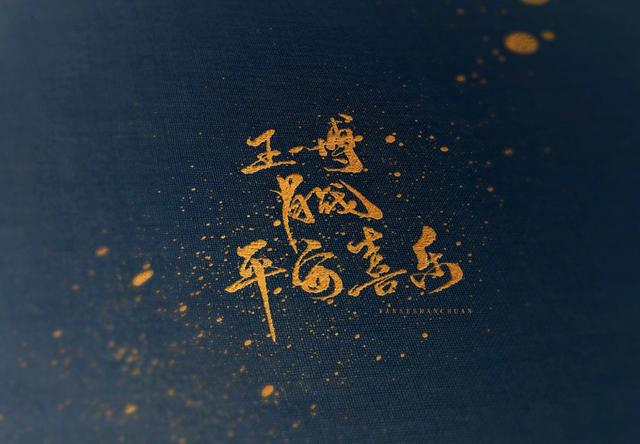 王一博
肖战
平安喜乐